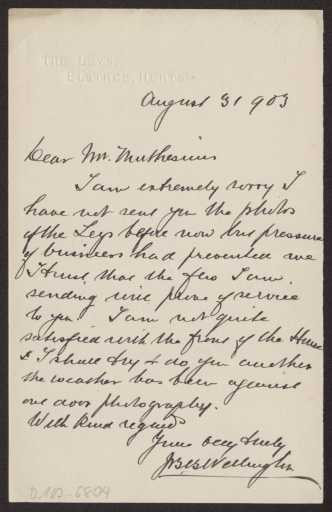 The Leys,
Elstree, Herts.
August 31 903
Dear Mr. Muthesius
I am extremely sorry I
have not sent you the photos
of the Leys before now but pressure
of business had prevented me
I trust that the few I am
sending will prove of service
to you I am not quite
satisfied with the front of the House
& I shall try & do you another
the weather has been against
out door photography.
With kind regards
Yours very truly
J.B.B. Wellington
D 102-6804